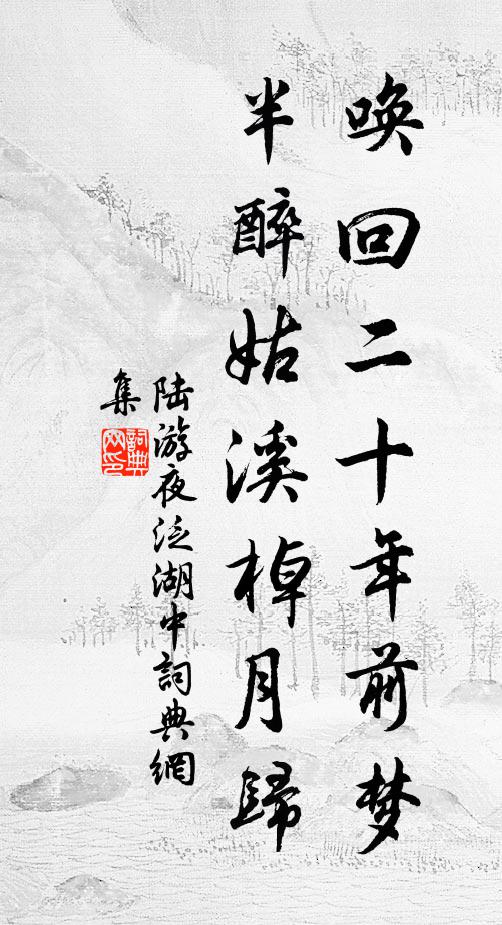 唤回二十年前梦
半醉姑溪棹月歸
陆游夜泛湖中詞典網
集
詞典
网印